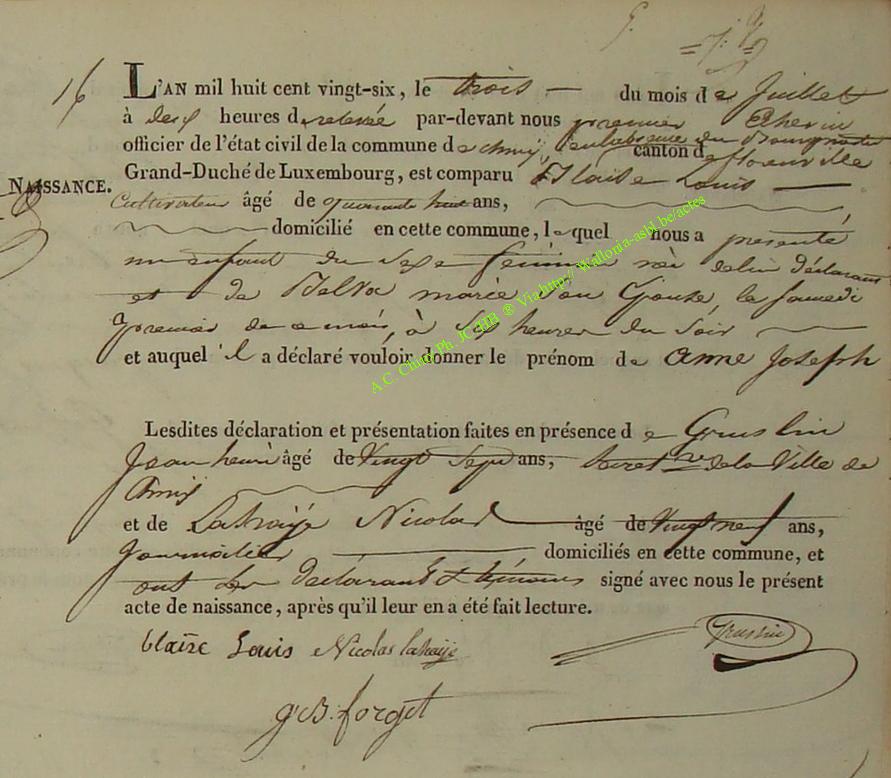 16
L'AN mil huit cent vingt-six, le trois du mois de Juillet
à deux heures de relevée par-devant nous premier Echevin
officier de l'état civil de la commune de Chiny, en l'absence du Bourgmestre canton de florenville
NAISSANCE.
Grand-Duché de Luxembourg, est comparu Blaise Louis
Cultivateur âgé de quarante huit ans,
domicilié en cette commune, lequel nous a présenté
un enfant du sexe féminin née de lui déclarant
et de Marie son Epouse, le samedi
premier de ce mois, à heures du soir
et auquel il a déclaré vouloir donner le prénom de anne Joseph
Lesdites déclaration et présentation faites en présence de
Jean henri âgé de Vingt Sept ans, de la Ville de
Chiny
et de Lahaÿe Nicolas âgé de Vingt neuf ans,
Journalier domiciliés en cette commune, et
ont les déclarant & témoins signé avec nous le présent
acte de naissance, après qu'il leur en a été fait lecture.
blaise Louis Nicolas lahaÿe
forget
A.C. Chiny Ph. JCHB ® Via http:// Wallonia-asbl.be/actes